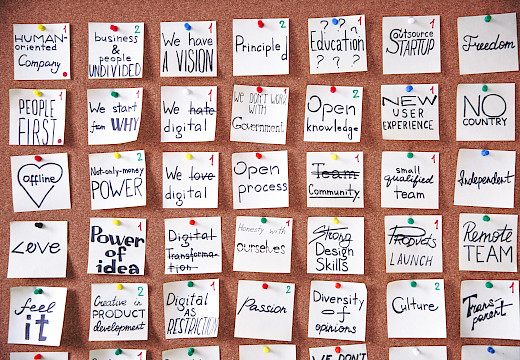 HUMAN-
oriented
Company
2
business
&
people
UNDIVIDED
1
We have
A VISION
2
Principled
1
? ? ?
Education
? ? ?
1
Outsource
STARTUP
Freedom
1
PEOPLE
FIRST
1
We start
from WHY
1
We hate
digital
1
WE DON'T WORK
with
Government
2
Open
knowledge
1
NEW
USER
EXPERIENCE
NO
COUNTRY
offline
2
Not-only-money
POWER
1
We love
digital
Open
process
1
Team
Community
1
small
qualified
team
Independent
Love
Power
of
idea
1
Digital
Transforma-
tion
1
Honesty with
ourselves
Strong
Design
Skills
1
Products
LAUNCH
Remote
TEAM
feel
it
2
Creative in
PRODUCT
development
1
Digital
AS
RESTRICTION
2
Passion
1
Diversity
of
opinions
2
Culture
1
Trans-
parent
WE DON'T